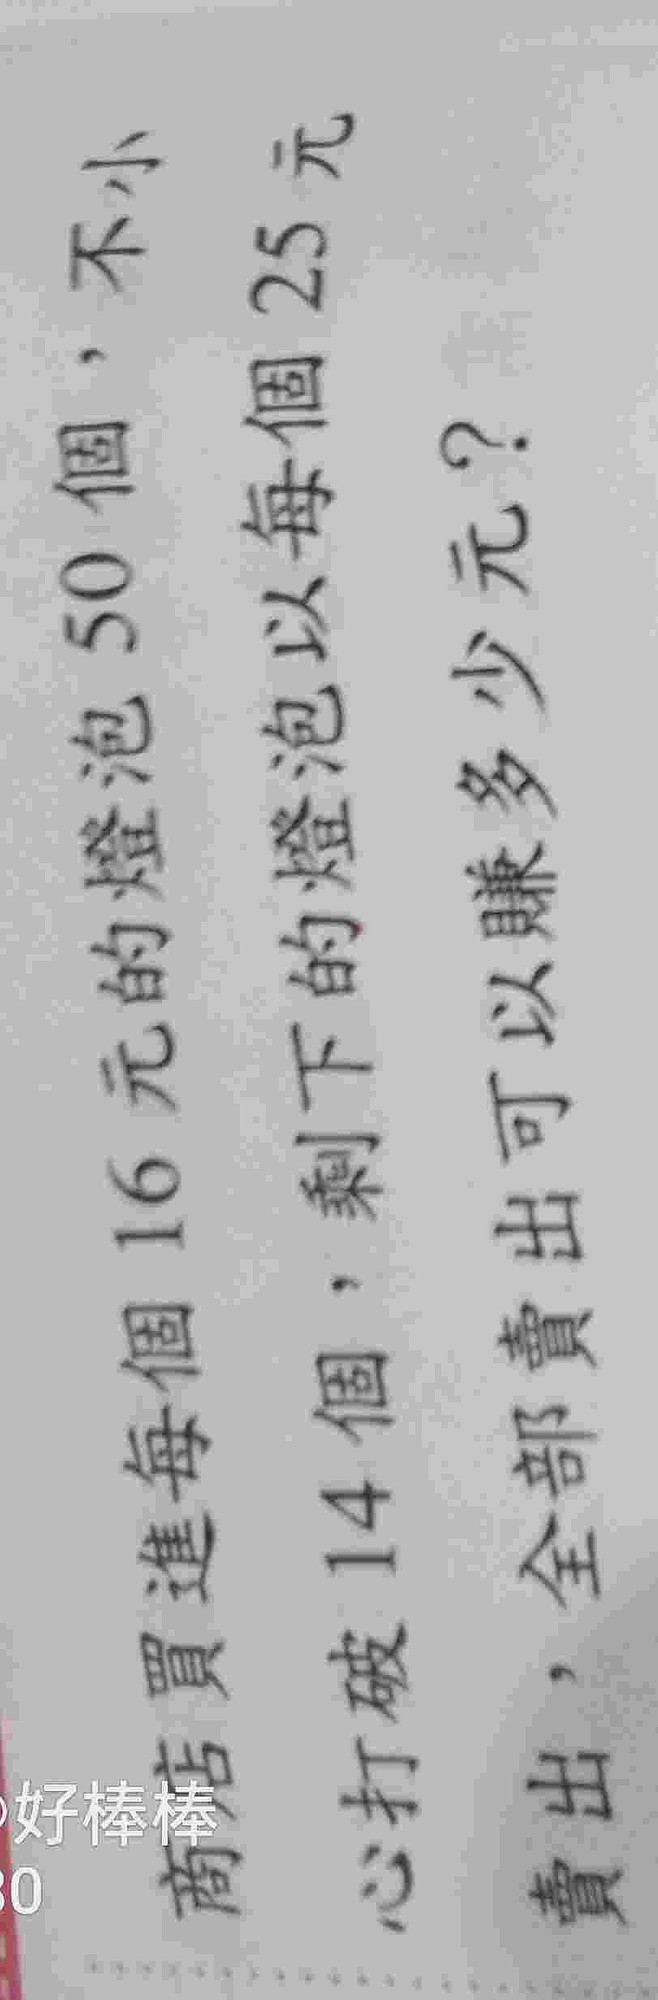 商店買進每個16元的燈泡50個，不小
心打破14個，剩下的燈泡以每個25元
賣出，全部賣出可以賺多少元？
好棒棒
30